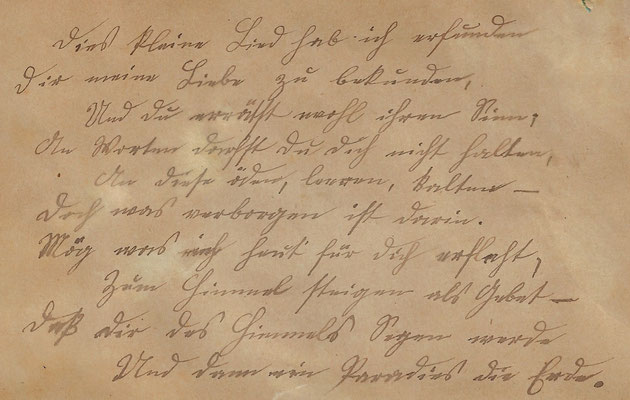 Dies kleine Lied hab ich erfunden
Dir meine Liebe zu bekunden,
Und du erräthst wohl ihren Sinn;
An Worten darfst Du dich nicht halten,
An diese öden, leeren, kalten –
Doch was verborgen ist darin.
Mög was ich heut' für dich erfleht,
Zum Himmel steigen als Gebet –
Daß dir des Himmels Segen werde
Und dann ein Paradies die Erde.